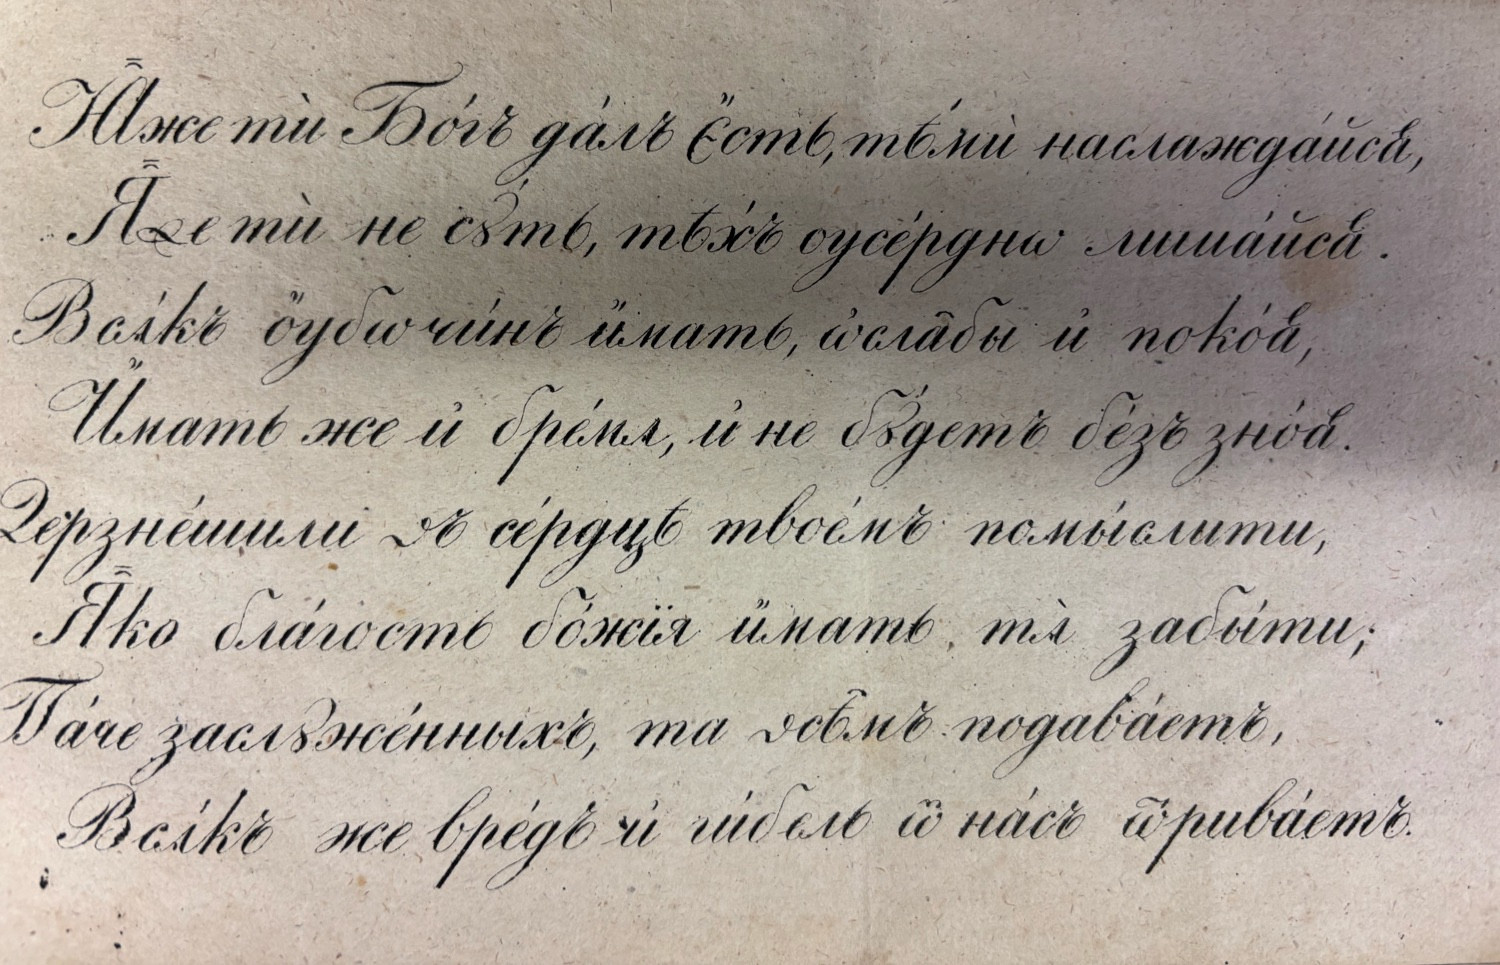 Ꙗ҆̀же тѝ Бо́гъ да́лъ є҆́сть, тѣ́мѝ наслажда́йсѧ̀,
Ꙗ҆̀же тѝ не сꙋ́ть, тѣ́хъ оусе́рднѡ лиша́йсѧ̀.
Всѧ́къ ѹ҆́бѡ чи́нъ и҆́мать, ѡ҆сла̑бы и҆ поко́ѧ̀,
И҆́мать же и҆ бре́мѧ, и҆ не бꙋ́детъ бе́зъ зно́ѧ̀.
Дерзне́шили въ се́рдцѣ твое́мъ помы́слити,
Ꙗ҆̀ко бла́гость бо́жїѧ и҆́мать тѧ̀ забы́ти;
Па́че заслꙋже́нныхъ, та всѣ̑мъ подава́етъ,
Всѧ́къ же вре́дъ и҆ ги́бель ѿ на́съ ѿрива́етъ.